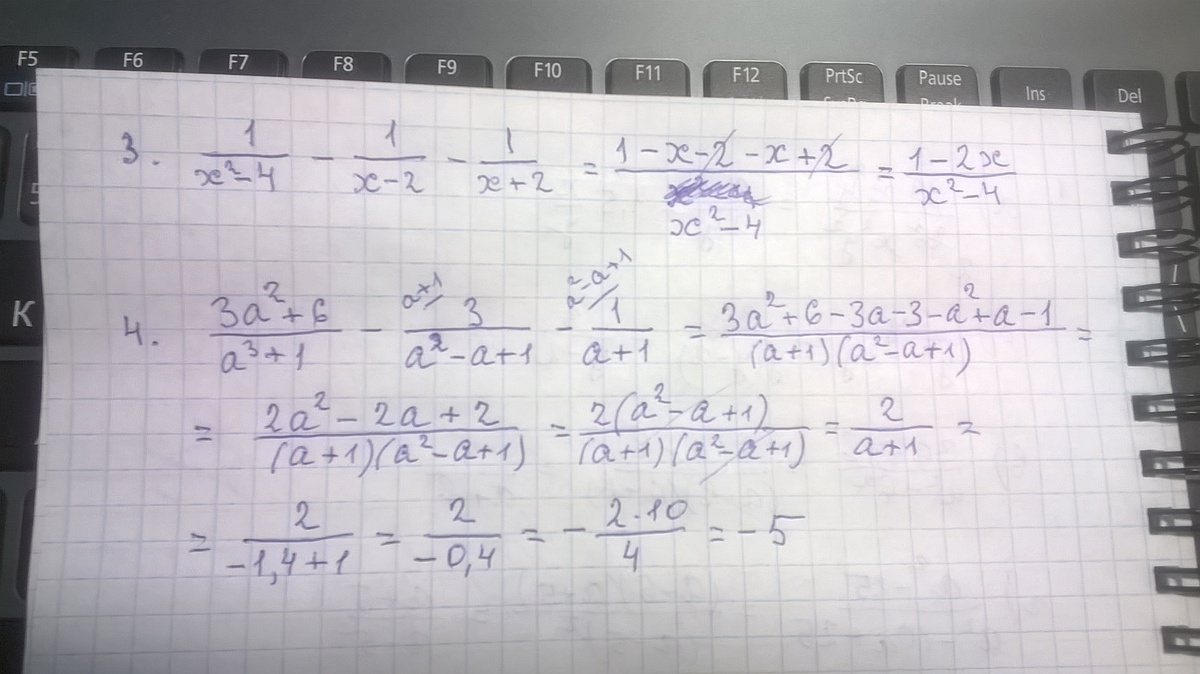 F5 F6 F7 F8 F9 F10 F11 F12 PrtSc Pause Ins Del
3. 1/(x²-4) - 1/(x-2) - 1/(x+2) = (1-x-2-x+2)/(x²-4) = (1-2x)/(x²-4)
a+1 a²-a+1
4. (3a²+6)/(a³+1) - 3/(a²-a+1) - 1/(a+1) = (3a²+6-3a-3-a²+a-1)/((a+1)(a²-a+1)) =
= (2a²-2a+2)/((a+1)(a²-a+1)) = 2(a²-a+1)/((a+1)(a²-a+1)) = 2/(a+1) =
= 2/(-1,4+1) = 2/(-0,4) = - (2·10)/4 = -5
K